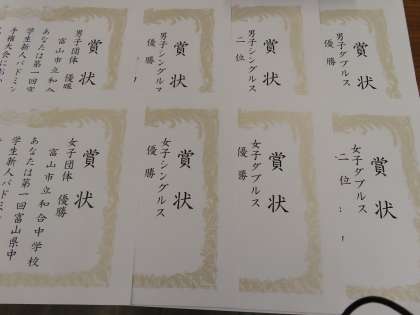 賞状
男子団体 優勝
富山市立和合
あなたは第一回富
学生新人バドミン
手権大会におい
賞状
男子シングルス
優勝
賞状
男子シングルス
二位
賞状
男子ダブルス
優勝
賞状
女子団体 優勝
富山市立和合中学校
あなたは第一回富山県中
学生新人バド
賞状
女子シングルス
優勝
賞状
女子ダブルス
優勝
賞状
女子ダブルス
二位